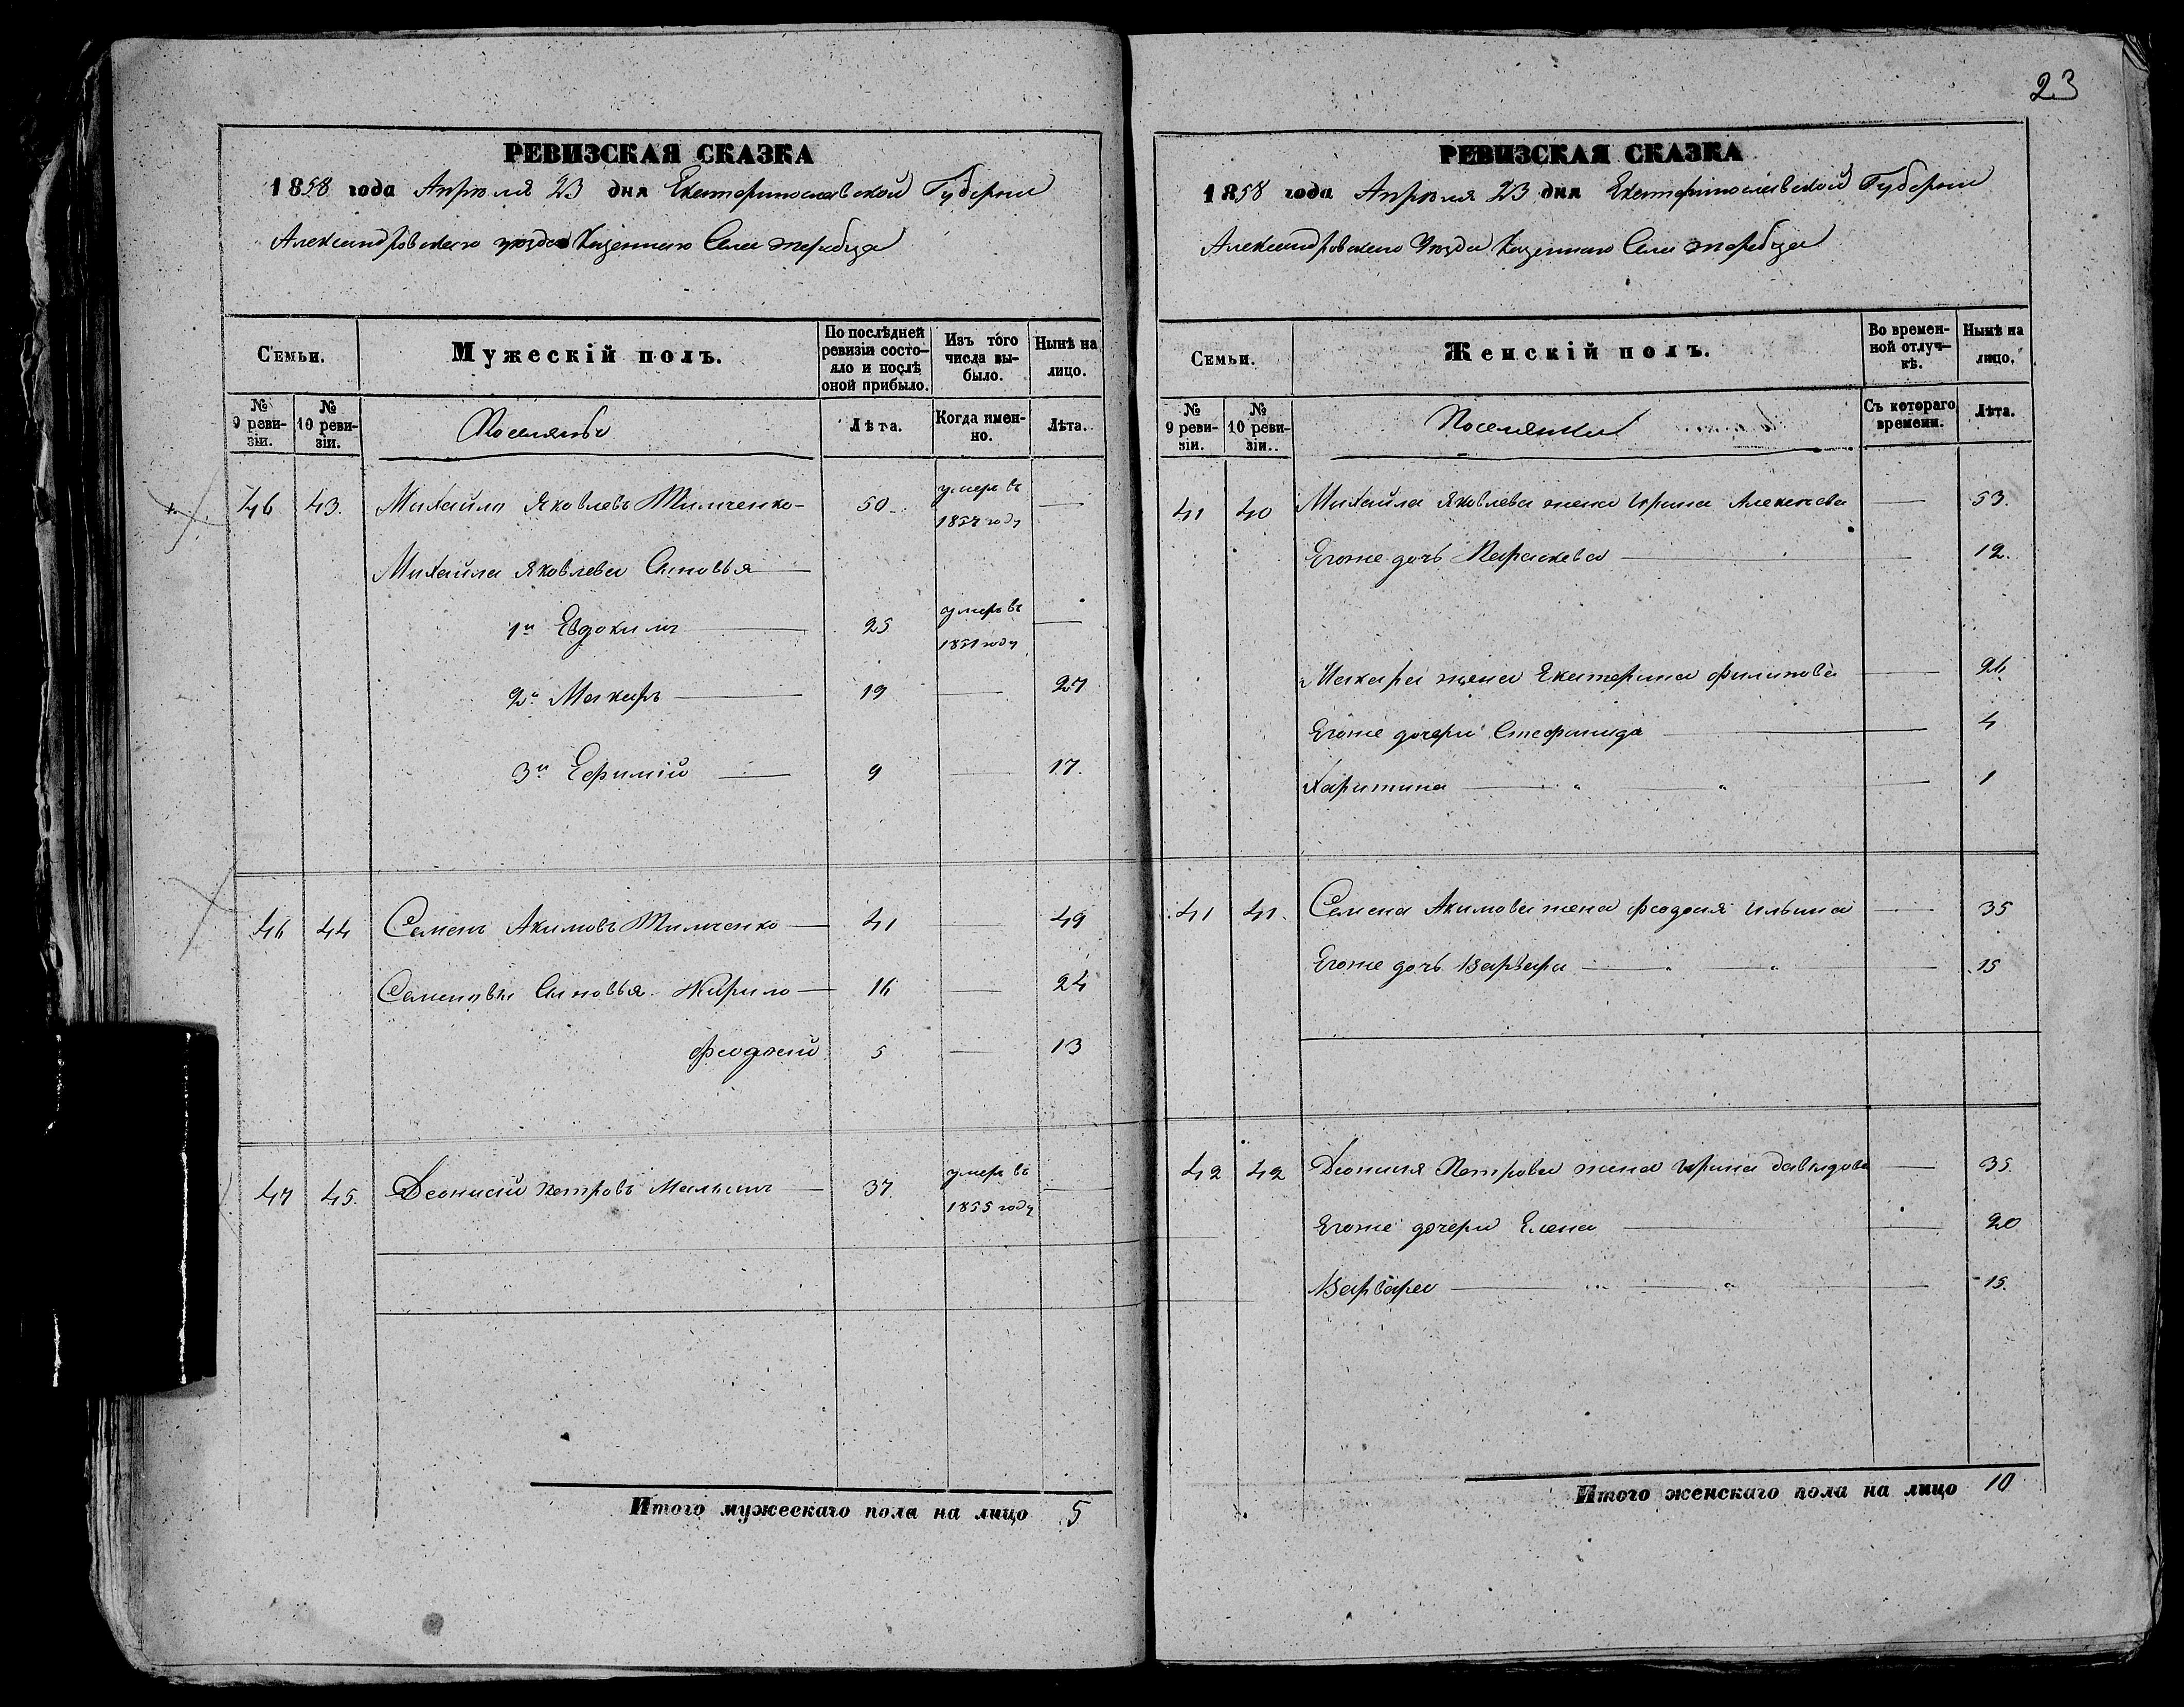 РЕВИЗСКАЯ СКАЗКА
1858 года Апреля 23 дня Екатеринославской Губернии
Александровского уезда Казенного Села жеребца
Семьи.
Мужескій полъ.
По послѣдней ревизіи состояло и послѣ оной прибыло.
Изъ того числа выбыло.
Нынѣ на лицо.
№ 9 ревизіи.
№ 10 ревизіи.
Поселянъ
Лѣта.
Когда именно.
Лѣта.
46 43. Михайло Яковлевъ Тимченко 50 умеръ въ
Михайла Яковлева Сыновья
1й Евдокимъ 25 умеръ въ
1851 году
2й Макаръ 19 — 27
3й Ефимій 9 — 17.
46 44 Семенъ Акимовъ Тимченко 41 — 49
Сыновья Кирило 16 — 24
5 — 13
47 45. Деонисій Петровъ 37 умеръ въ
1855 году
Итого мужескаго пола на лицо 5
23
РЕВИЗСКАЯ СКАЗКА
1858 года Апреля 23 дня Екатеринославской Губернии
Александровского Уезда Казенного Села жеребца
Семьи.
Женскій полъ.
Во временной отлучкѣ.
Нынѣ на лицо.
№ 9 ревизіи.
№ 10 ревизіи.
Поселянки
Съ котораго времени.
Лѣта.
41 40 Михайла Яковлева жена Ирина Алексеева — 53.
Егоже дочь Параскева — 12.
Макара жена Екатерина Филипова — 26
Егоже дочери Стефанида — 4
Харитина — 1
41 41. Семена Акимова жена Феодосия Ильина — 35
Егоже дочь Варвара — 15
42 42 Деонисия Петрова жена Ирина Давыдова — 35.
Егоже дочери Елена — 20
Варвара — 15.
Итого женскаго пола на лицо 10